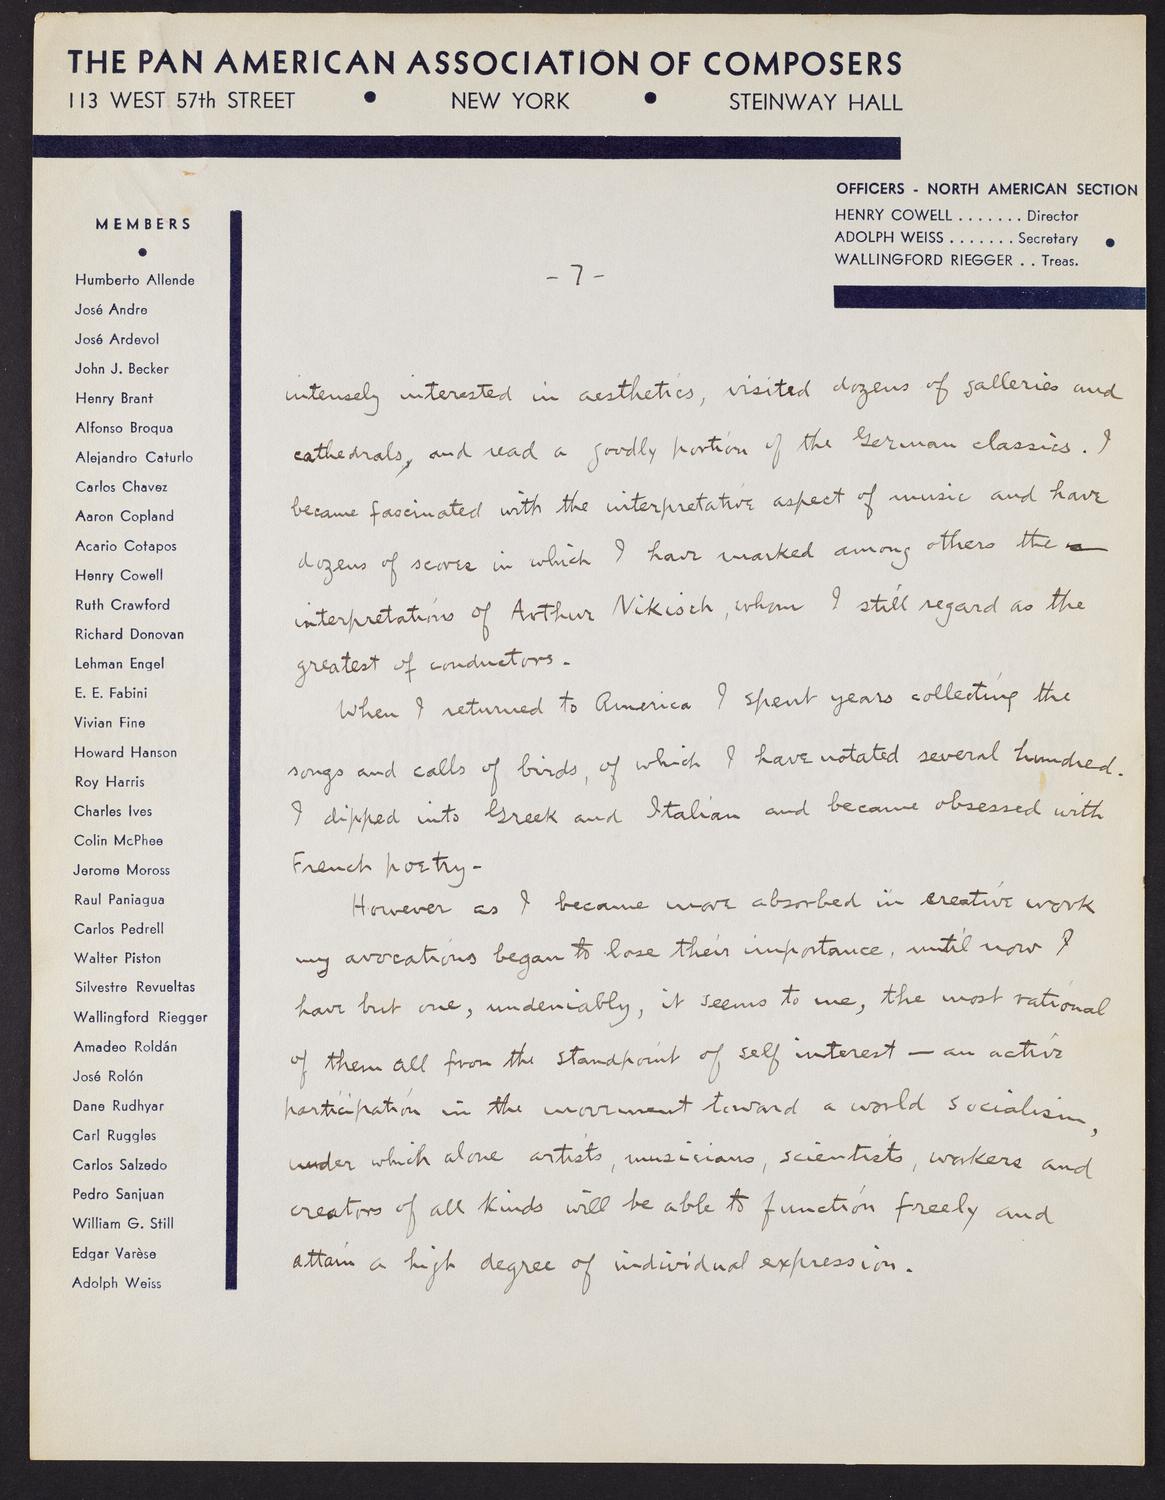 THE PAN AMERICAN ASSOCIATION OF COMPOSERS
113 WEST 57th STREET • NEW YORK • STEINWAY HALL
OFFICERS - NORTH AMERICAN SECTION
HENRY COWELL . . . . . . . Director
ADOLPH WEISS . . . . . . . Secretary •
WALLINGFORD RIEGGER . . Treas.
MEMBERS
•
Humberto Allende
José Andre
José Ardevol
John J. Becker
Henry Brant
Alfonso Broqua
Alejandro Caturlo
Carlos Chavez
Aaron Copland
Acario Cotapos
Henry Cowell
Ruth Crawford
Richard Donovan
Lehman Engel
E. E. Fabini
Vivian Fine
Howard Hanson
Roy Harris
Charles Ives
Colin McPhee
Jerome Moross
Raul Paniagua
Carlos Pedrell
Walter Piston
Silvestre Revueltas
Wallingford Riegger
Amadeo Roldán
José Rolón
Dane Rudhyar
Carl Ruggles
Carlos Salzedo
Pedro Sanjuan
William G. Still
Edgar Varèse
Adolph Weiss
- 7 -
intensely interested in aesthetics, visited dozens of galleries and
cathedrals, and read a goodly portion of the German classics. I
became fascinated with the interpretative aspect of music and have
dozens of scores in which I have marked among others the
interpretations of Arthur Nikisch, whom I still regard as the
greatest of conductors.
When I returned to America I spent years collecting the
songs and calls of birds, of which I have notated several hundred.
I dipped into Greek and Italian and became obsessed with
French poetry-
However as I became more absorbed in creative work
my avocations began to lose their importance, until now I
have but one, undeniably, it seems to me, the most rational
of them all from the standpoint of self interest — an active
participation in the movement toward a world socialism,
under which alone artists, musicians, scientists, workers and
creators of all kinds will be able to function freely and
attain a high degree of individual expression.